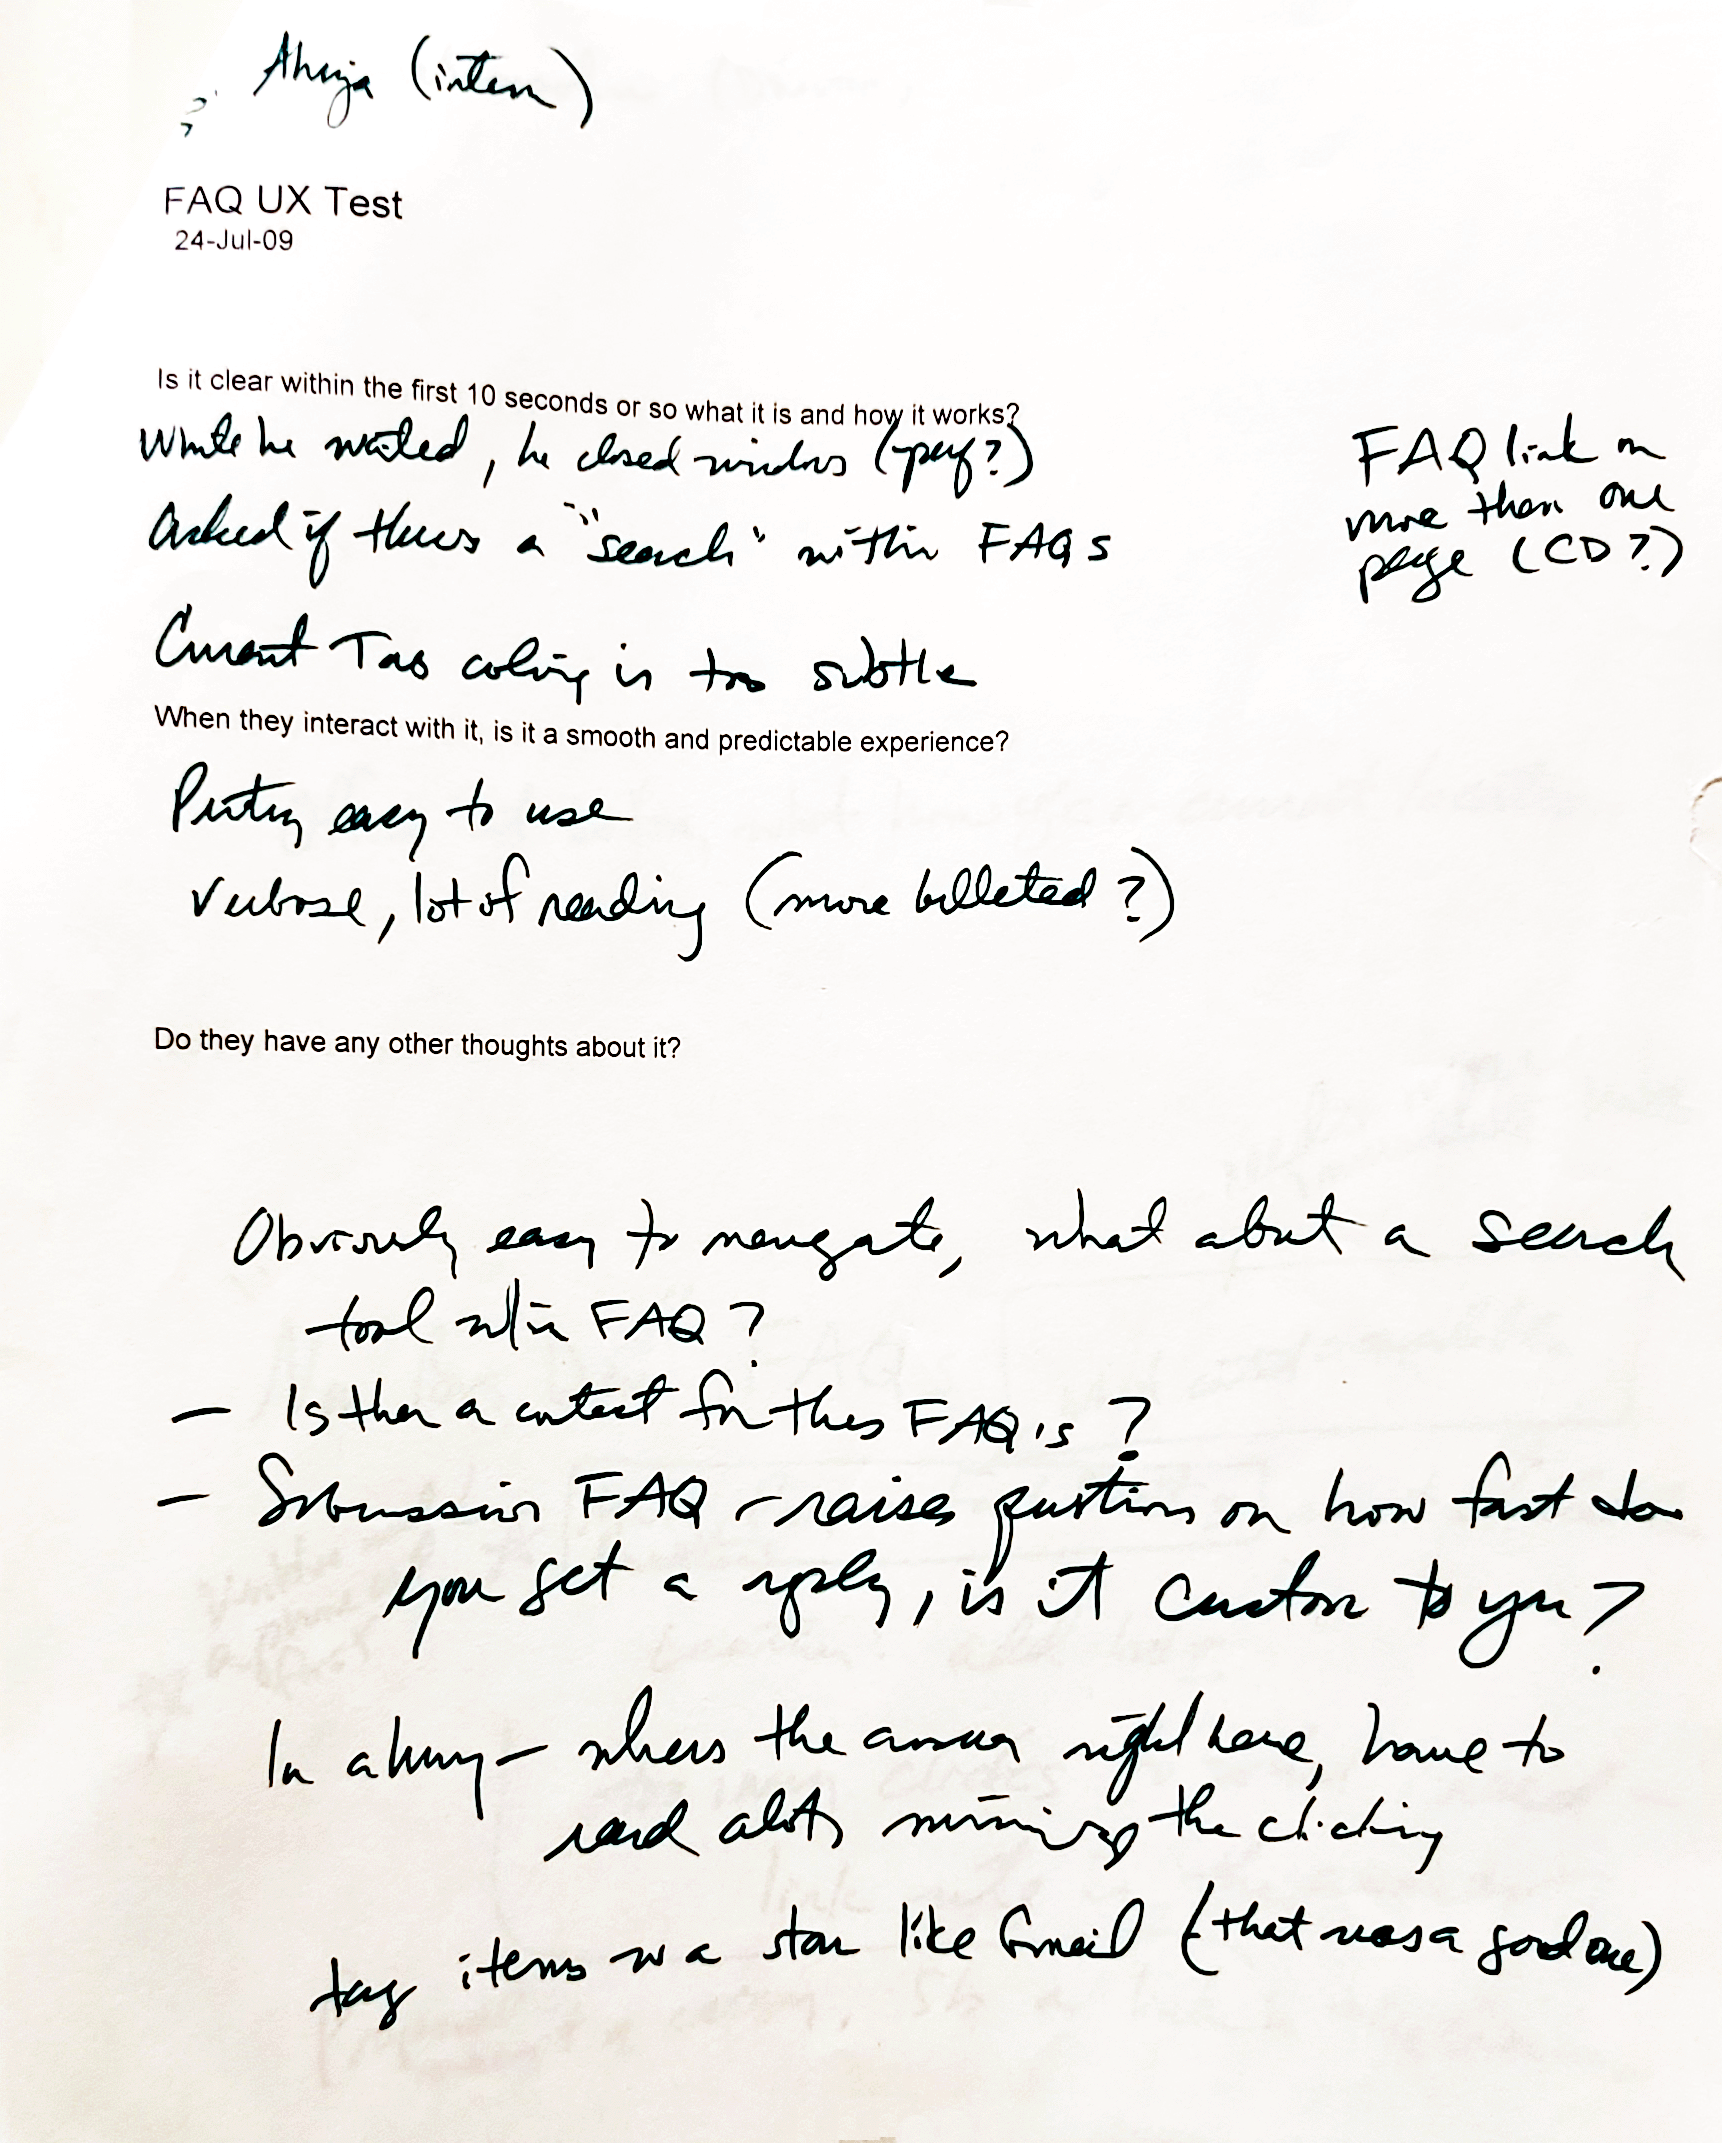 Ahuja (intern)
FAQ UX Test
24-Jul-09
Is it clear within the first 10 seconds or so what it is and how it works?
While he waited, he closed windows (perf?)
Asked if theres a "search" within FAQs
Current Tab coloring is too subtle
FAQ link on
more than one
page (CD?)
When they interact with it, is it a smooth and predictable experience?
Pretty easy to use
Verbose, lot of reading (more bulleted?)
Do they have any other thoughts about it?
Obviously easy to navigate, what about a search
tool w/in FAQ?
- Is there a contact for these FAQ's?
- Submission FAQ - raises questions on how fast do
you get a reply, is it custom to you?
In a hurry - wheres the answer right here, have to
read alot, minimize the clicking
tag items w a star like Gmail (that was a good one)